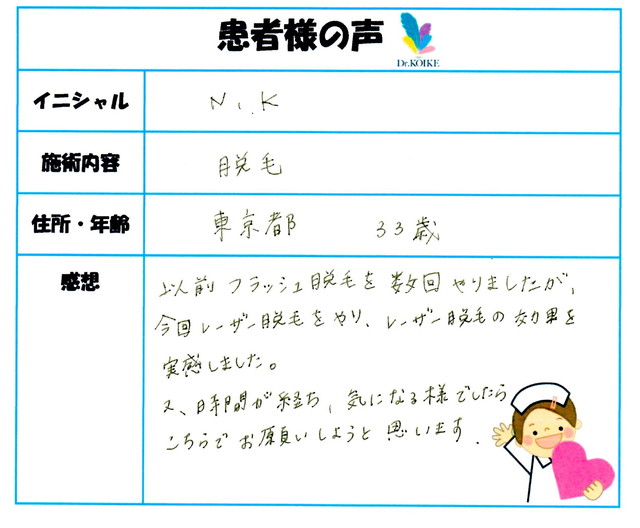 患者様の声
Dr.KOIKE
イニシャル
N、K
施術内容
脱毛
住所・年齢
東京都 33歳
感想
以前フラッシュ脱毛を数回やりましたが、
今回レーザー脱毛をやり、レーザー脱毛の効果を
実感しました。
又、時間が経ち、気になる様でしたら
こちらでお願いしようと思います.